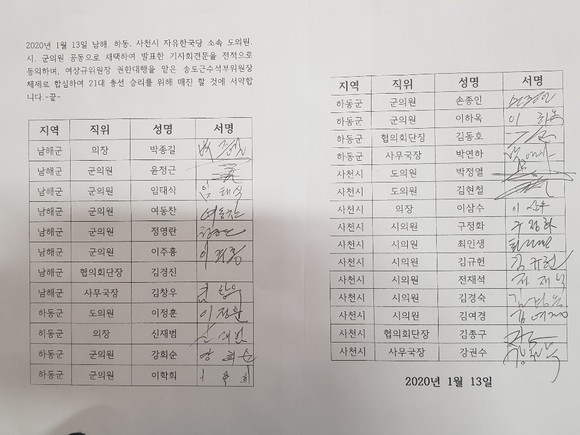 2020년 1월 13일 남해. 하동. 사천시 자유한국당 소속 도의원.
시. 군의원 공동으로 채택하여 발표한 기자회견문을 전적으로
동의하며, 여상규위원장 권한대행을 맡은 송도근수석부위원장
체제로 합심하여 21대 총선 승리를 위해 매진 할 것에 서약합
니다.-끝-
지역 직위 성명 서명
남해군 의장 박종길
남해군 군의원 윤정근
남해군 군의원 임태식 임태식
남해군 군의원 여동찬 여동찬
남해군 군의원 정영란
남해군 군의원 이주홍
남해군 협의회단장 김경진
남해군 사무국장 김창우
하동군 도의원 이정훈 이정훈
하동군 의장 신재범 신재범
하동군 군의원 강희순 강희순
하동군 군의원 이학희 이학희
지역 직위 성명 서명
하동군 군의원 손종인
하동군 군의원 이하옥 이하옥
하동군 협의회단장 김동호
하동군 사무국장 박연하
사천시 도의원 박정열
사천시 도의원 김현철
사천시 의장 이삼수 이삼수
사천시 시의원 구정화 구정화
사천시 시의원 최인생
사천시 시의원 김규헌 김규헌
사천시 시의원 전재석 전재석
사천시 시의원 김경숙 김경숙
사천시 시의원 김여경 김여경
사천시 협의회단장 김종구
사천시 사무국장 강권수
2020년 1월 13일